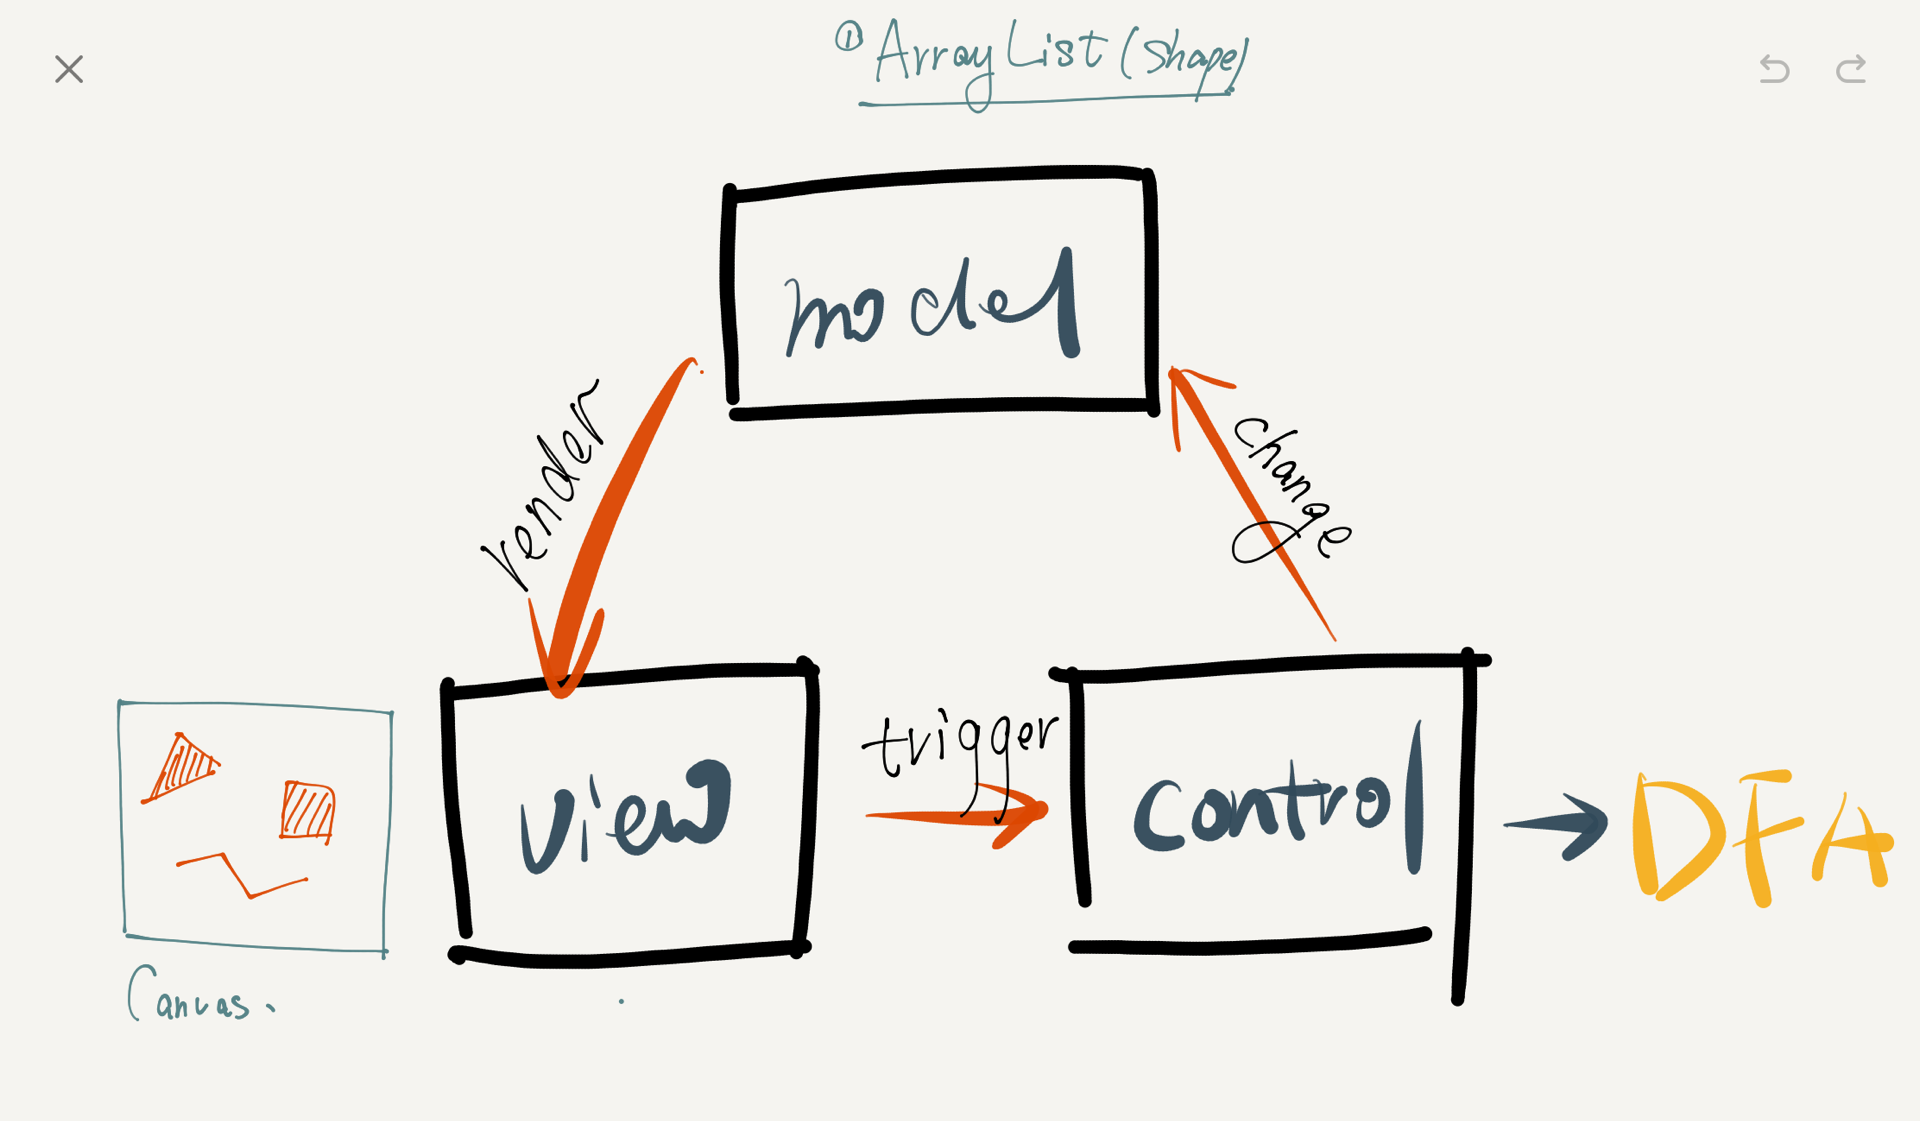 ① ArrayList(Shape)
model
render
change
view
trigger
control
DFA
Canvas.